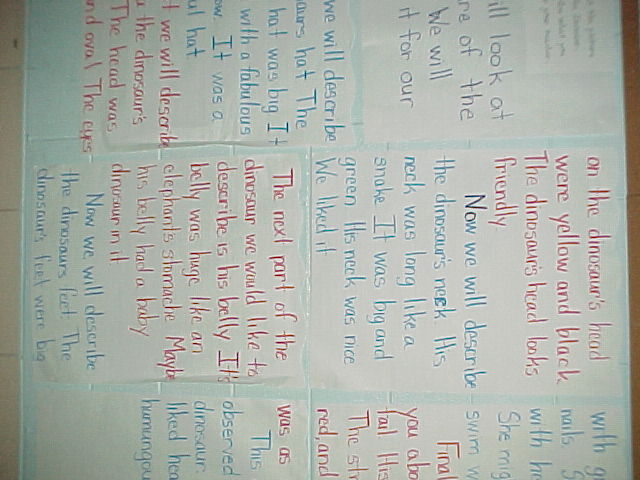 ill look at
re of the
We will
it for our
we will describe
aurs hat The
hat was big It
with a fabulous
ow. It was a
ul hat
t we will describe
the dinosaur's
The head was
nd oval The eyes
on the dinosaur's head
were yellow and black.
The dinosaur's head looks
friendly
Now we will describe
the dinosaur's neck. His
neck was long like a
snake It was big and
green His neck was nice
We liked it
The next part of the
dinosaur we would like to
describe is his belly It's
belly was huge like an
elephant's stomache Maybe
his belly had a baby
dinosaur in it
Now we will describe
the dinosaurs feet The
dinosaur's feet were big
with g
nails
with he
She mig
swim w
Final
you abo
tail His
The str
red, and
was as
This
observed
dinosaur.
liked hea
humungou